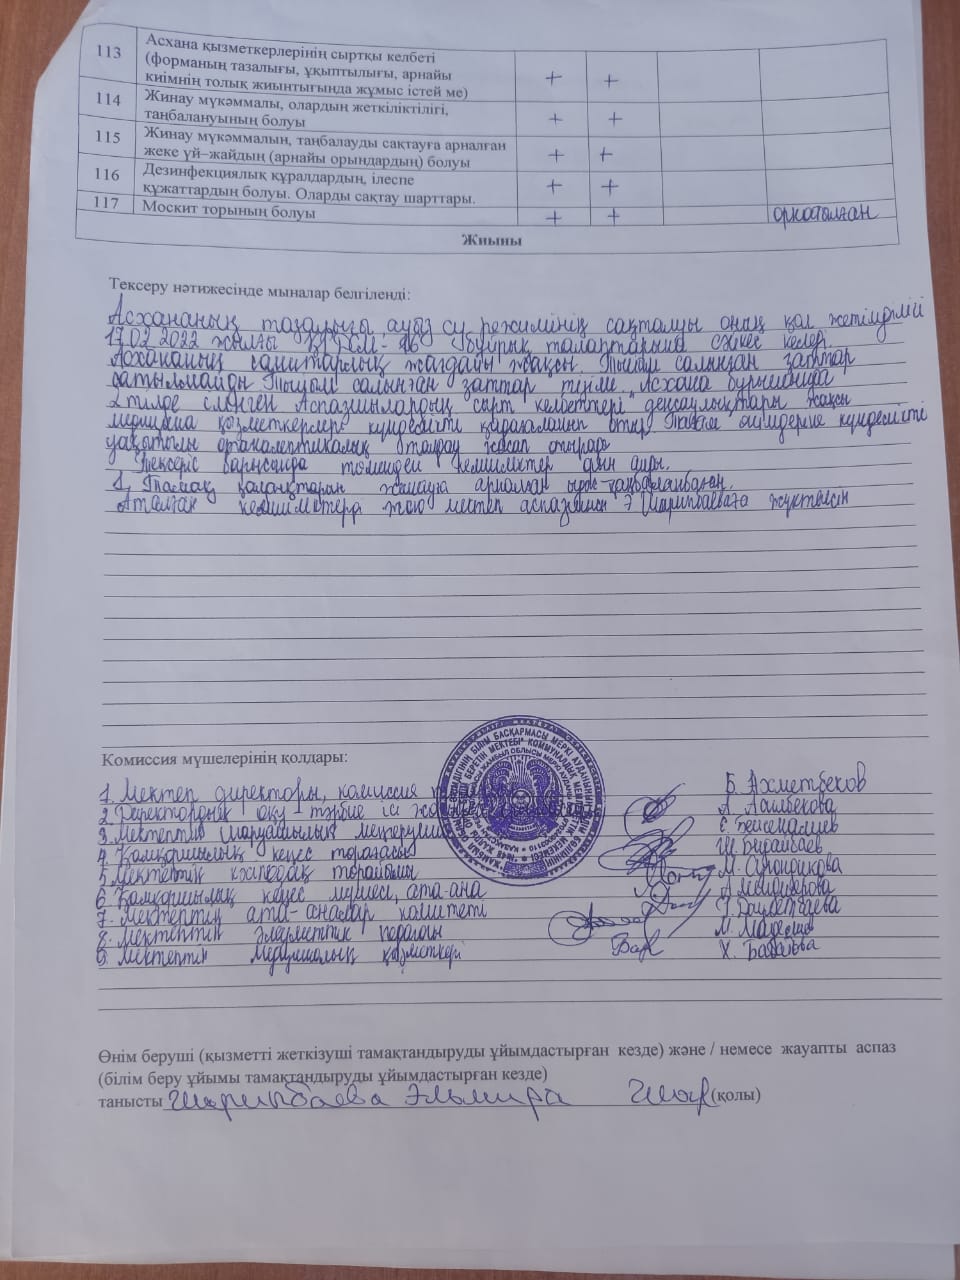 113 Асхана қызметкерлерінің сыртқы келбеті
(форманың тазалығы, ұқыптылығы, арнайы
киімнің толық жиынтығында жұмыс істей ме) + +
114 Жинау мүкәммалы, олардың жеткіліктілігі,
таңбалануының болуы + +
115 Жинау мүкәммалын, таңбалауды сақтауға арналған
жеке үй–жайдың (арнайы орындардың) болуы + +
116 Дезинфекциялық құралдардың, ілеспе
құжаттардың болуы. Оларды сақтау шарттары. + +
117 Москит торының болуы + + орнатылған
Жиыны
Тексеру нәтижесінде мыналар белгіленді:
Асхананың тазалығы, ауыз су режимінің сақталуы оның қол жетімділігі
17.02.2022 жылғы ҚР ДСМ-16 бұйрық талаптарына сәйкес келеді.
Асхананың санитарлық жағдайы жақсы. Тыйым салынған заттар
сатылмайды. Тыйым салынған заттар тізімі Асхана бұрышында
2 тілде ілінген. Аспазшылардың сырт келбеттері, денсаулықтары жақсы
медицина қызметкерлері күнделікті қадағалап отыр. Тағам өнімдеріне күнделікті
уақытылы органолептикалық талдау жасап отырады
Тексеріс барысында төмендегі кемшіліктер орын алды.
1. Тамақ қалдықтарын жинауға арналған ыдыс таңбаланбаған.
Аталған кемшіліктерді жою мектеп аспазшысы Э Шарипбаеваға жүктелсін
Комиссия мүшелерінің қолдары:
1. Мектеп директоры, комиссия Б. Ахметбеков
2. Директордың оқу-тәрбие ісі А.
3. Мектептің шаруашылық меңгерушісі Е. Бейсеналиев
4. Қамқоршылық кеңес төрағасы
5. Мектептің кәсіподақ төрайымы М.
6. Қамқоршылық кеңес мүшесі, ата-ана А.
7. Мектептің ата-аналар комитеті
8. Мектептің әлеуметтік педагогы М.
9. Мектептің Медициналық қызметкері Х. Бабаева
Өнім беруші (қызметті жеткізуші тамақтандыруды ұйымдастырған кезде) және / немесе жауапты аспаз
(білім беру ұйымы тамақтандыруды ұйымдастырған кезде)
танысты Шарипбаева Эльмира (қолы)